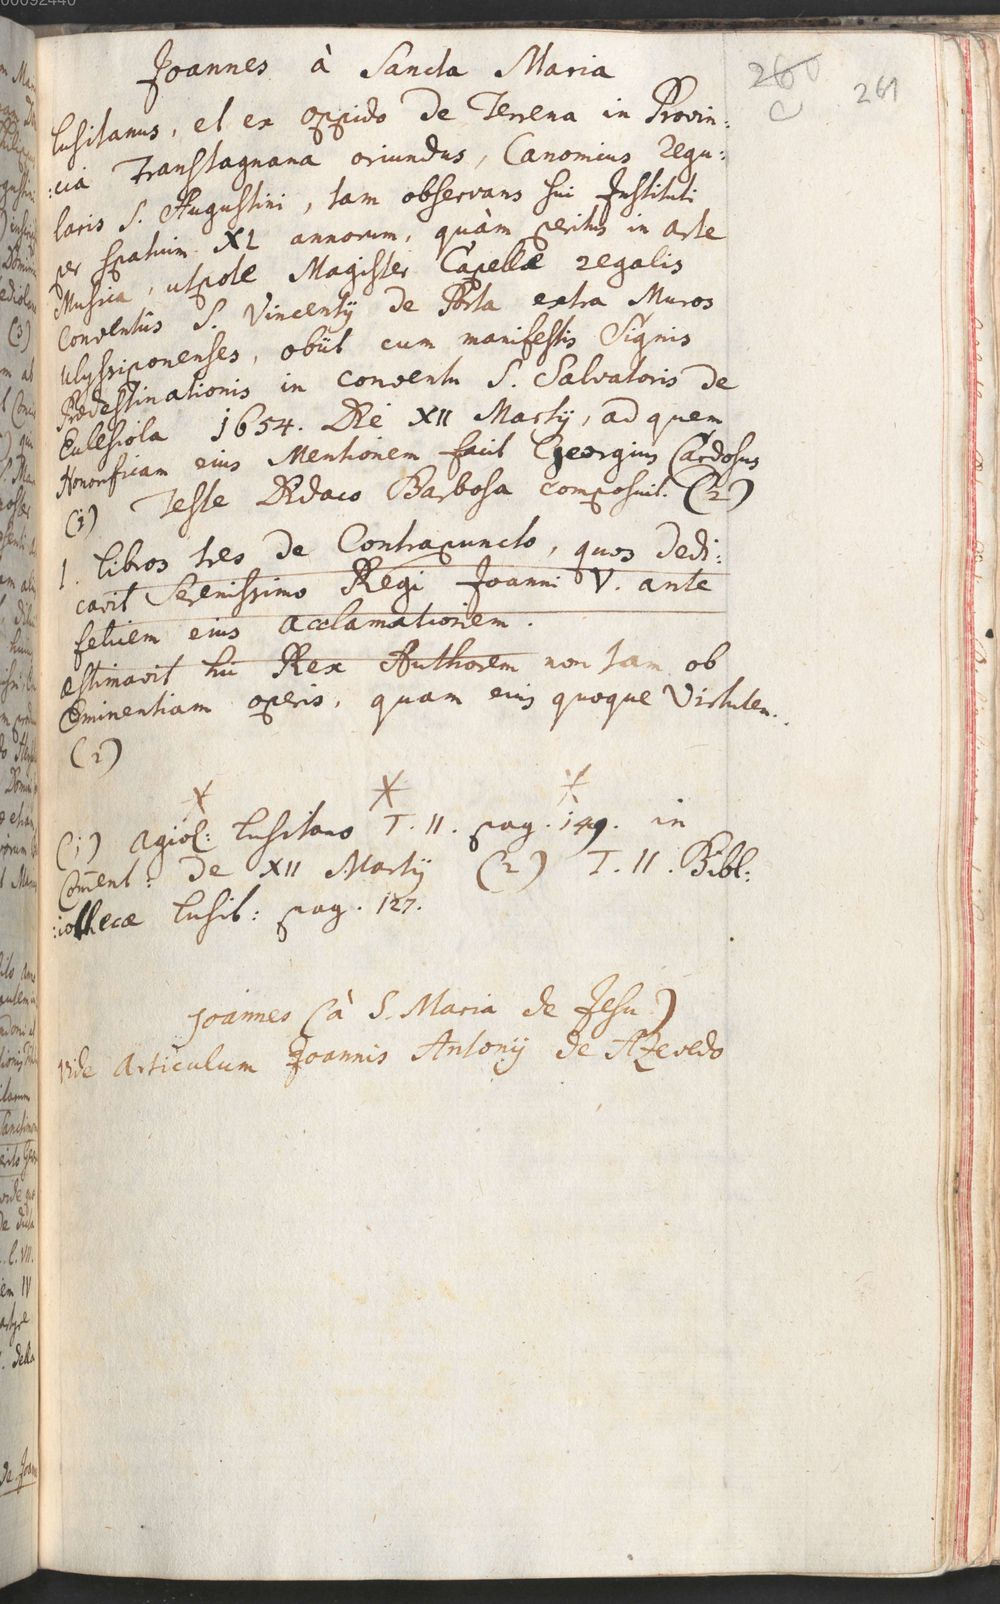 00092440
Joannes à Sancta Maria
260
C
261
Lusitanus, et ex oppido de Terrena in Provin:
:cia Transtagnana oriundus, Canonicus Regu:
laris S. Augustini, tam observans sui Instituti
per spatium XL annorum, quàm peritus in arte
Musica, utpote Magister Capellæ regalis
Conventûs S. Vincentij de Porta extra Muros
Ulyssiponenses, obiit cum manifestis Signis
Prædestinationis in conventu S. Salvatoris de
Ecclesiola 1654. Die XII Martij, ad quem
Honorificam eius Mentionem facit Georgius Cardosus
(1) Teste Didaco Barbosa composuit. (2)
1. Libros tres de Contrapuncto, quos dedi:
cavit Serenissimo Regi Joanni V. ante
felicem eius acclamationem.
æstimavit hic Rex Authorem non tam ob
Eminentiam operis, quam eius quoque Virtutem.
(2)
(1) Agiol: Lusitano T. II. pag. 149. in
Coment: de XII Martij (2) T. II. Bibl:
:iothecæ Lusit: pag. 127.
Joannes (à S. Maria de Jesu)
Vide Articulum Joannis Antonij de Azevedo